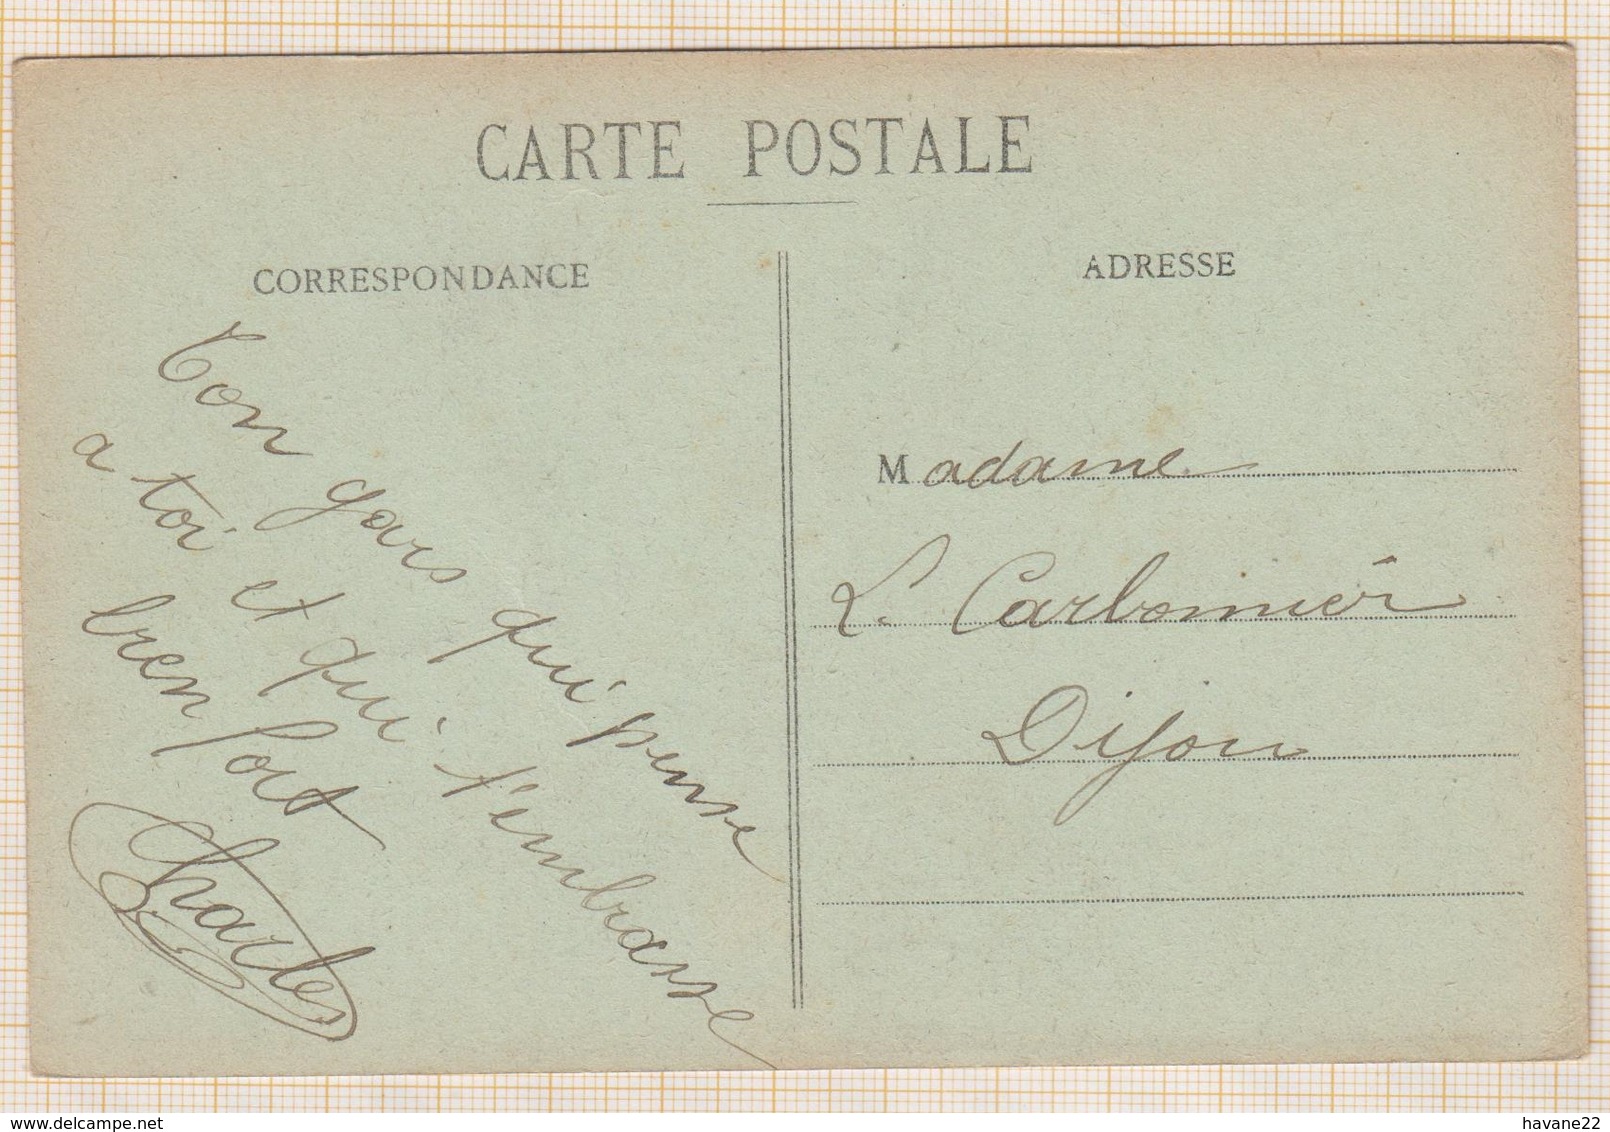 CARTE POSTALE
CORRESPONDANCE
Ton gars qui pense
a toi et qui t'embrasse
bien fort
Charles
ADRESSE
Madame
L. Carbonnier
Dijon
delcampe.net
havane22